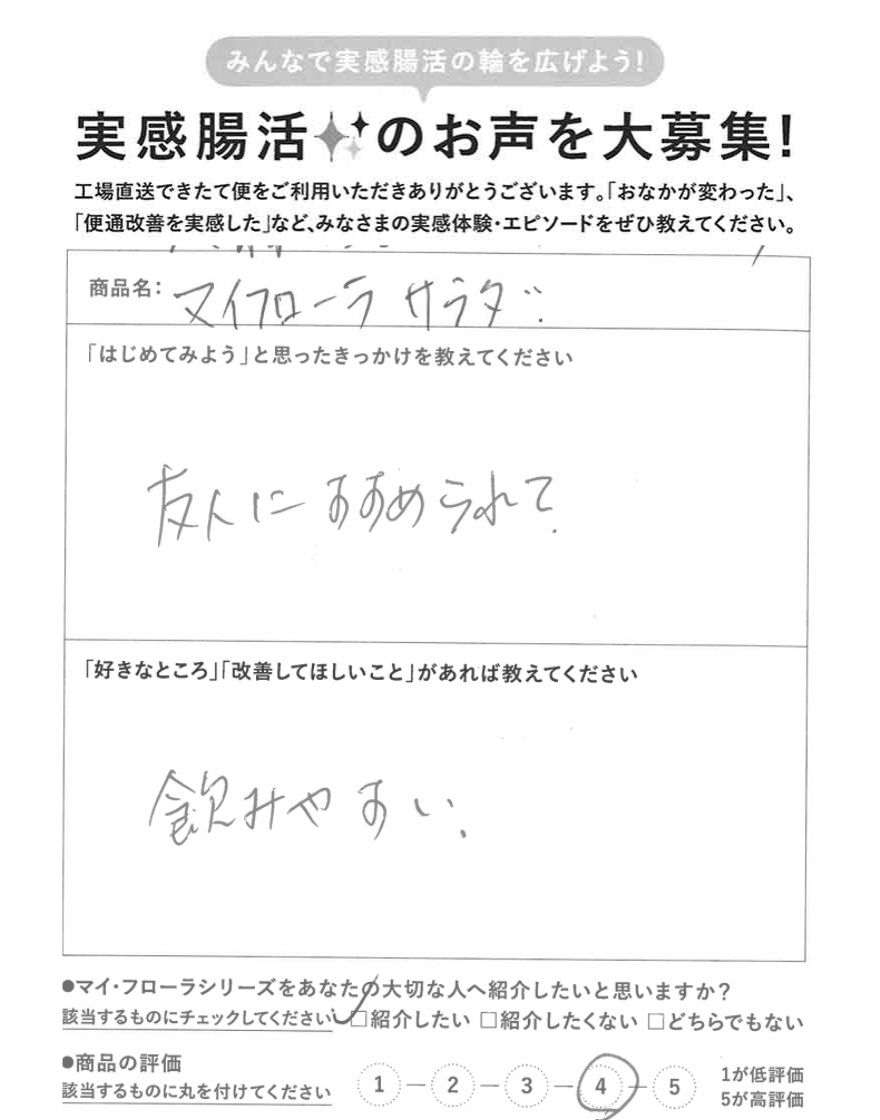 みんなで実感腸活の輪を広げよう!
実感腸活のお声を大募集!
工場直送できたて便をご利用いただきありがとうございます。「おなかが変わった」、
「便通改善を実感した」など、みなさまの実感体験・エピソードをぜひ教えてください。
商品名: マイフローラ サラダ
「はじめてみよう」と思ったきっかけを教えてください
友人にすすめられて
「好きなところ」「改善してほしいこと」があれば教えてください
飲みやすい.
●マイ・フローラシリーズをあなたの大切な人へ紹介したいと思いますか?
該当するものにチェックしてください □紹介したい □紹介したくない □どちらでもない
●商品の評価
該当するものに丸を付けてください 1 ― 2 ― 3 ― 4 ― 5 1が低評価
5が高評価